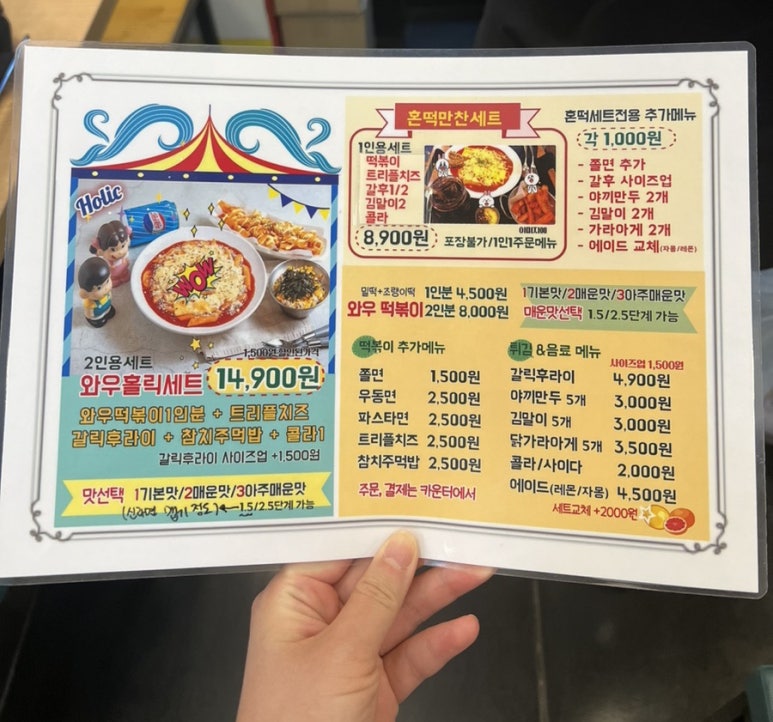 Holic
WOW
1,500원 할인된가격
2인용세트
와우홀릭세트 14,900원
와우떡볶이1인분 + 트리플치즈
갈릭후라이 + 참치주먹밥 + 콜라1
갈릭후라이 사이즈업 +1,500원
맛선택 1기본맛/2매운맛/3아주매운맛
1.5/2.5단계 가능
혼떡만찬세트
1인용세트
떡볶이
트리플치즈
갈후1/2
김말이2
콜라
8,900원
포장불가/1인1주문메뉴
혼떡세트전용 추가메뉴
각 1,000원
- 쫄면 추가
- 갈후 사이즈업
- 야끼만두 2개
- 김말이 2개
- 가라아게 2개
- 에이드 교체(자몽/레몬)
밀떡+조랭이떡 1인분 4,500원
와우 떡볶이 2인분 8,000원
1기본맛/2매운맛/3아주매운맛
매운맛선택 1.5/2.5단계 가능
떡볶이 추가메뉴
쫄면 1,500원
우동면 2,500원
파스타면 2,500원
트리플치즈 2,500원
참치주먹밥 2,500원
주문, 결제는 카운터에서
튀김 &음료 메뉴
사이즈업 1,500원
갈릭후라이 4,900원
야끼만두 5개 3,000원
김말이 5개 3,000원
닭가라아게 5개 3,500원
콜라/사이다 2,000원
에이드(레몬/자몽) 4,500원
세트교체 +2000원